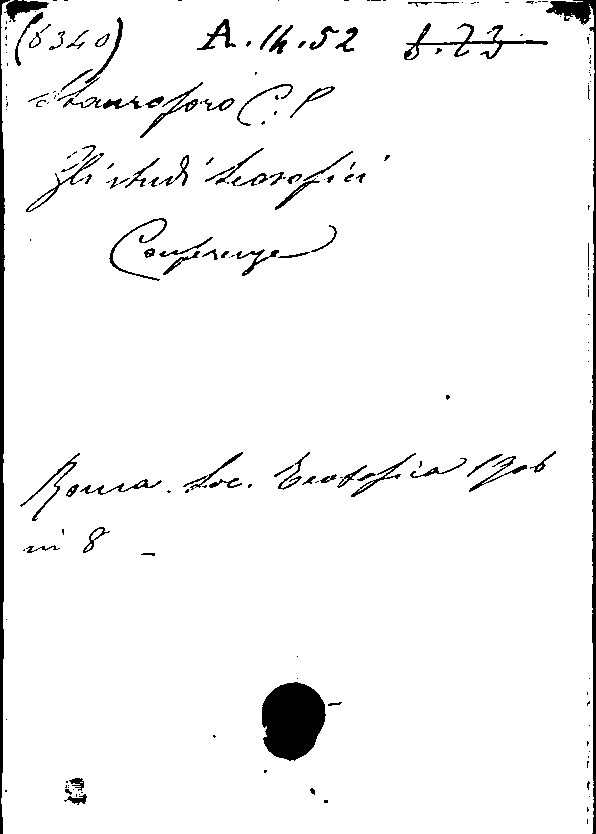 (8340) A.14.52 f.23
Stauroforo C. P
Gli studi teosofici
Conferenze
Roma. Soc. Teosofica 1906
in 8 -